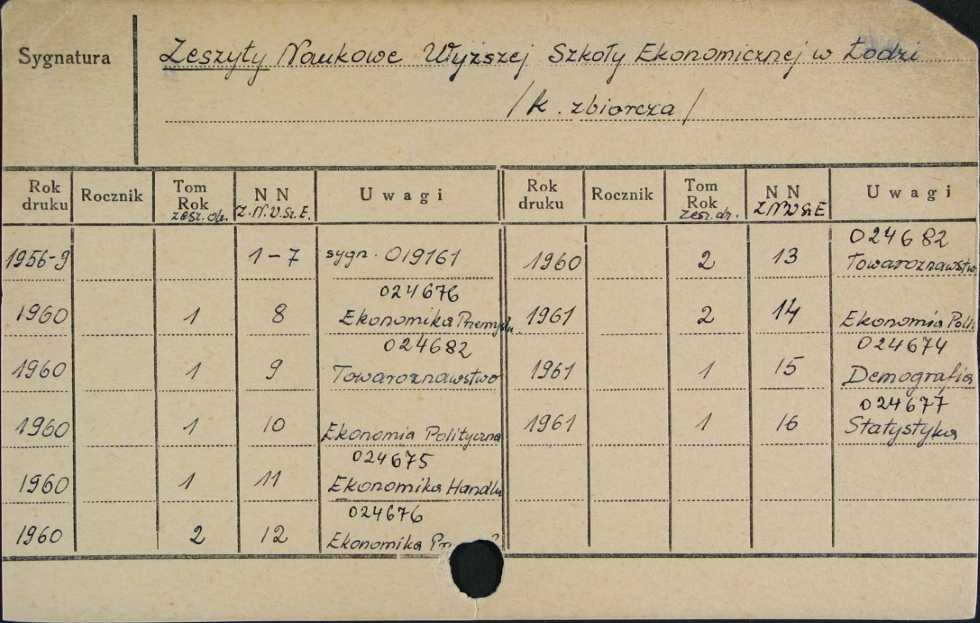 Sygnatura
Zeszyty Naukowe Wyższej Szkoły Ekonomicznej w Łodzi
/k. zbiorcza/
Rok druku Rocznik Tom Rok zesz. dr. N N Z.N.W.Sz.E. Uwagi
1956-9 1-7 sygn. 019161
1960 1 8 024676 Ekonomika Przemysłu
1960 1 9 024682 Towaroznawstwo
1960 1 10 Ekonomia Polityczna
1960 1 11 024675 Ekonomika Handlu
1960 2 12 024676 Ekonomika
Rok druku Rocznik Tom Rok zesz. dr. N N Z.N.W.Sz.E Uwagi
1960 2 13 024682 Towaroznawstwo
1961 2 14 Ekonomia Polit
1961 1 15 024674 Demografia
1961 1 16 024677 Statystyka